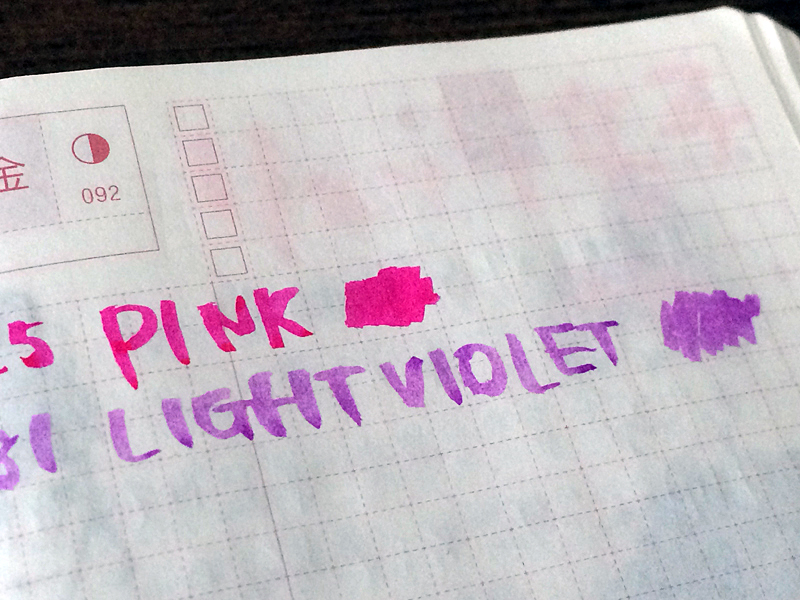 金
092
25 PINK
31 LIGHT VIOLET